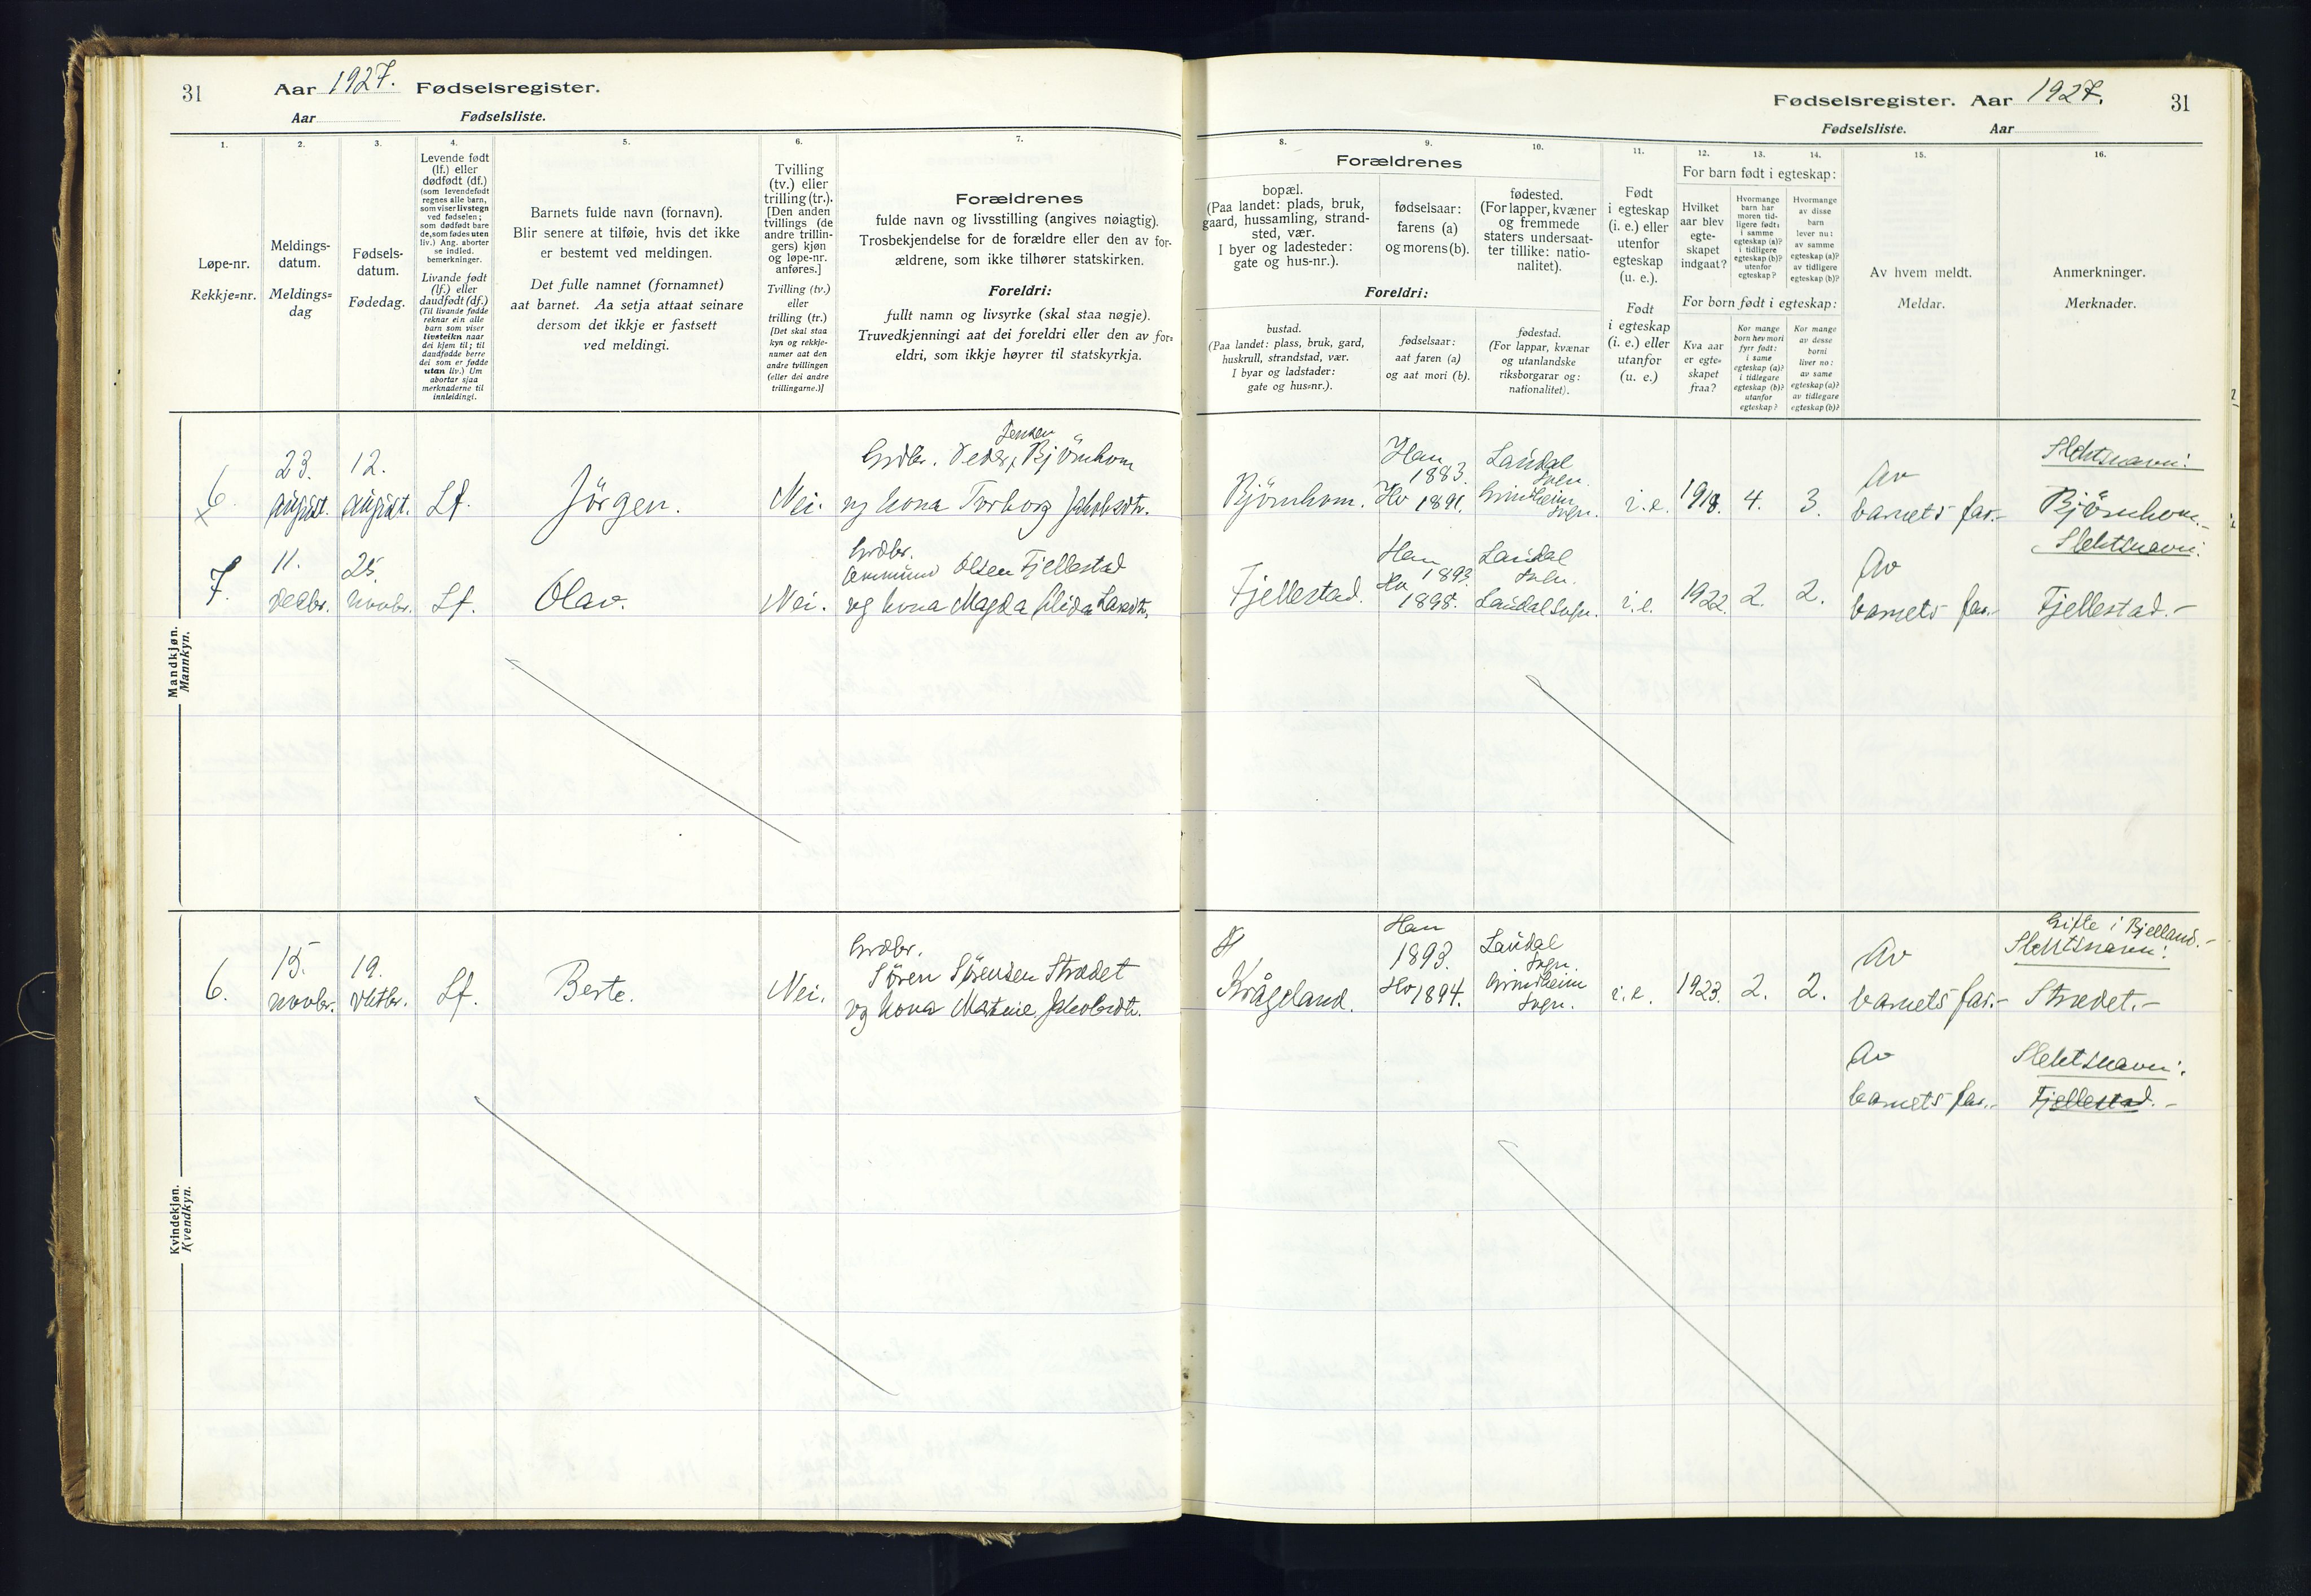 31
Aar 1927. Fødselsregister.
Aar Fødselsliste.
1.
2.
3.
4.
5.
6.
7.
Løpe-nr.
Rekkje=nr.
Meldings-
datum.
Meldings=
dag
Fødsels-
datum.
Fødedag.
Levende født
(lf.) eller
dødfødt (df.)
(som levendefødt
regnes alle barn,
som viser livstegn
ved fødselen;
som dødfødt bare
de, som fødes uten
liv.) Ang. aborter
se indled.
bemerkninger.
Livande født
(lf.) eller
daudfødt (df.)
(Til livande fødde
reknar ein alle
barn som viser
livsteikn naar
dei kjem til; til
daudfødde berre
dei som er fødde
utan liv.) Um
abortar sjaa
merknaderne til
innleidingi.
Barnets fulde navn (fornavn).
Blir senere at tilføie, hvis det ikke
er bestemt ved meldingen.
Det fulle namnet (fornamnet)
aat barnet. Aa setja attaat seinare
dersom det ikkje er fastsett
ved meldingi.
Tvilling
(tv.) eller
trilling (tr.).
[Den anden
tvillings (de
andre trillin-
gers) kjøn
og løpe-nr.
anføres.]
Tvilling (tv.)
eller
trilling (tr.)
[Det skal staa
kyn og rekkje-
numer aat den
andre tvillingen
(eller dei andre
trillingarne.)]
Forældrenes
fulde navn og livsstilling (angives nøiagtig).
Trosbekjendelse for de forældre eller den av for-
ældrene, som ikke tilhører statskirken.
Foreldri:
fullt namn og livsyrke (skal staa nøgje).
Truvedkjenningi aat dei foreldri eller den av for=
eldri, som ikkje høyrer til statskyrkja.
Mandkjøn.
Mannkyn.
6.
x
23.
august.
12.
august.
Lf.
Jörgen.
Nei.
Jensen
Grdbr. Peder x Björnhom
og kona Torborg Jakobsdtr.
7.
11.
decbr.
25.
novbr.
Lf.
Olav.
Nei.
Grdbr.
Ommund Olsen Fjellestad
og kona Magda Larsdtr.
Kvindekjøn.
Kvendkyn.
6.
15.
novbr.
19.
oktbr.
Lf.
Berte.
Nei.
Grdbr.
Søren Sørensen Strædet
og kona Martine Jakobsdtr.
Fødselsregister. Aar 1927.
31
Fødselsliste. Aar
8.
9.
10.
11.
12.
13.
14.
15.
16.
Forældrenes
bopæl.
(Paa landet: plads, bruk,
gaard, hussamling, strand-
sted, vær.
I byer og ladesteder:
gate og hus-nr.).
fødselsaar:
farens (a)
og morens (b).
fødested.
(For lapper, kvæner
og fremmede
staters undersaat-
ter tillike: natio-
nalitet).
Foreldri:
bustad.
(Paa landet: plass, bruk, gard,
huskrull, strandstad, vær.
I byar og ladstader:
gate og hus=nr.).
fødselsaar:
aat faren (a)
og aat mori (b).
fødestad.
(For lappar, kvænar
og utanlandske
riksborgarar og:
nationalitet).
Født
i egteskap
(i. e.) eller
utenfor
egteskap
(u. e.).
Født
i egteskap
(i. e.) eller
utanfor
(u. e.)
For barn født i egteskap:
Hvilket
aar blev
egte-
skapet
indgaat?
Hvormange
barn har
moren tid-
ligere født:
i samme
egteskap (a)?
i tidligere
egteskap (b)?
utenfor
egteskap?
Hvormange
av disse
barn
lever nu:
av samme
egteskap (a)?
av tidligere
egteskap (b)?
For born født i egteskap:
Kva aar
er egte=
skapet
fraa?
Kor mange
born hev mori
fyrr født:
i same
egteskap (a)?
i tidlegare
egteskap (b)?
utanfor
egteskap?
Kor mange
av desse
borni
liver no:
av same
egteskap (a)?
av tidlegare
egteskap (b)?
Av hvem meldt.
Meldar.
Anmerkninger.
Merknader.
Björnhom.
Han
1883.
Ho 1891.
Laudal
Sogn.
Grindheim
Sogn.
i.e.
1918.
4.
3.
Av
barnets far.-
Slektsnavn:
Björnhom.-
Fjellestad.
Han
1893.
Ho
1898.
Laudal
Sogn.
Laudal Sogn.
i.e.
1922.
2.
2.
Av
barnets far.-
Slektsnavn:
Fjellestad.-
Krågeland.
Han
1893.
Ho 1894.
Laudal
Sogn.
Grindheim
Sogn.
i.e.
1923.
2.
2.
Av
barnets far.-
Gifte i Bjelland.-
Slektsnavn:
Strædet.-
Av
barnets far.-
Slektsnavn:
Fjellestad.-